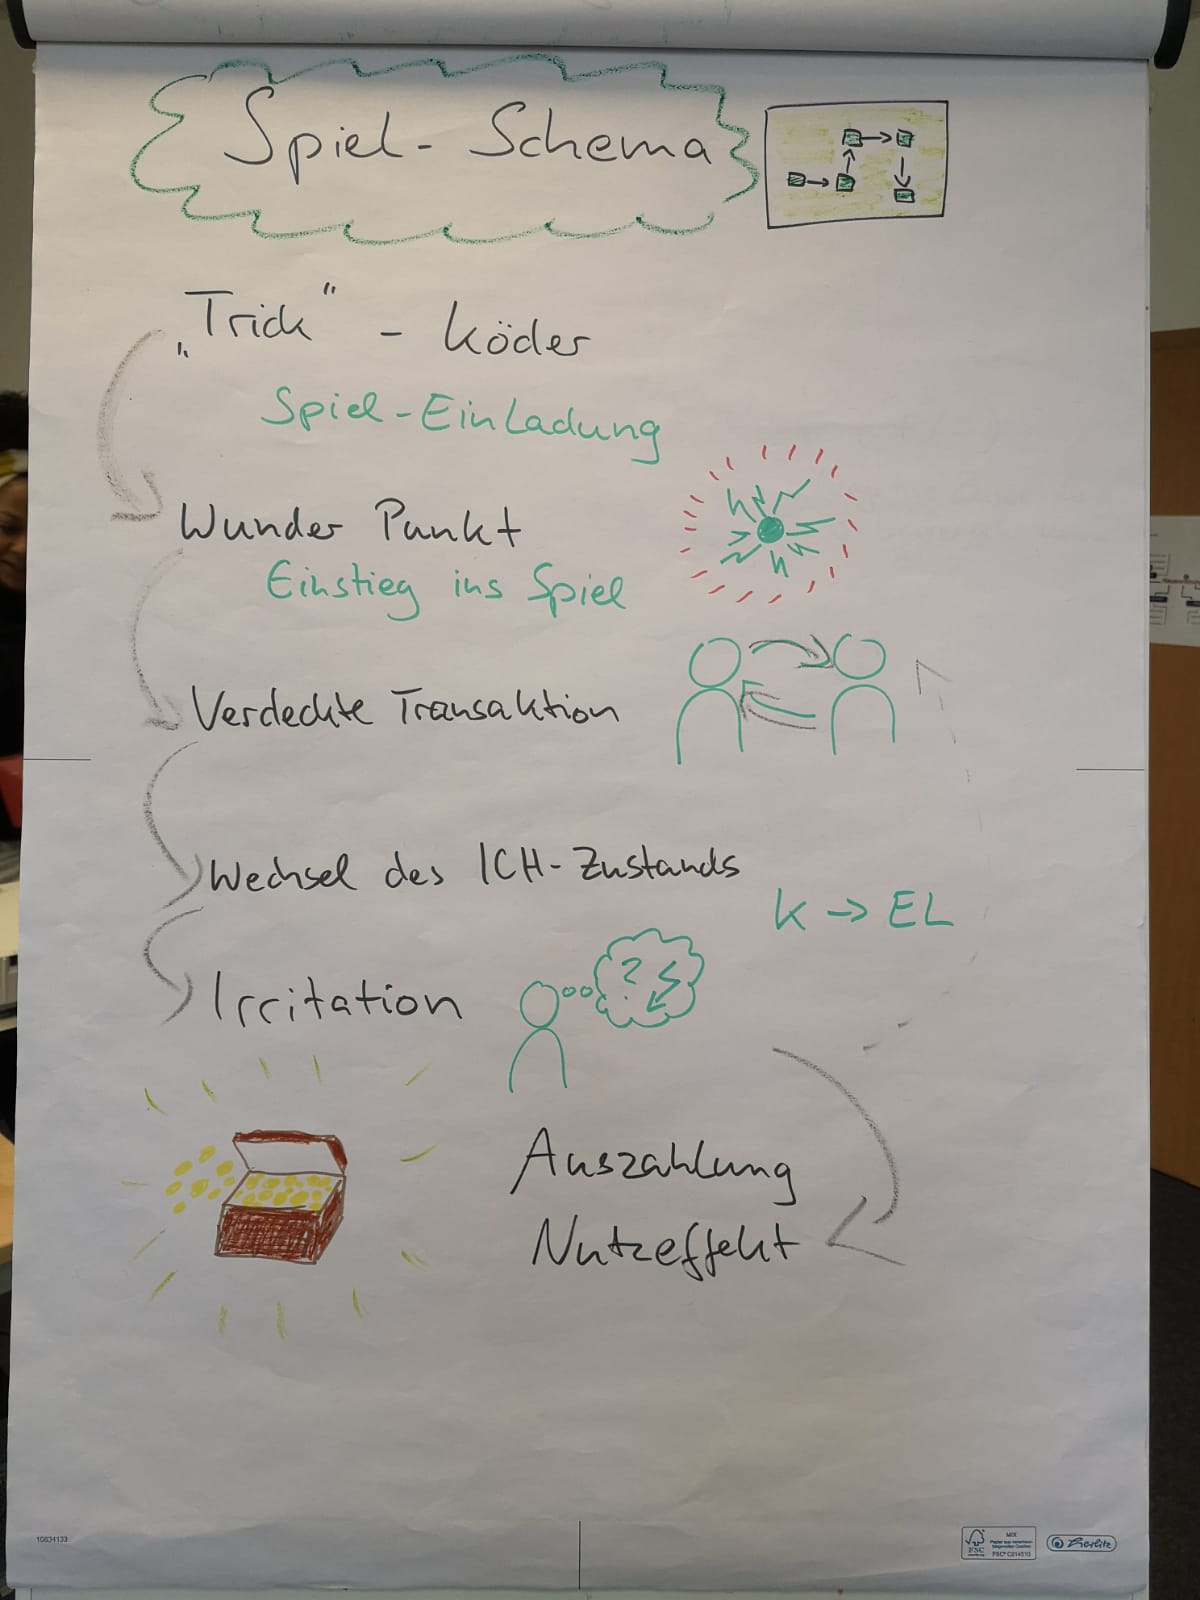 Spiel-Schema
„Trick" - Köder
Spiel-Einladung
Wunder Punkt
Einstieg ins Spiel
Verdeckte Transaktion
Wechsel des ICH-Zustands
K → EL
Irritation
?
Auszahlung
Nutzeffekt
10834133
FSC
MIX
FSC® C014510
Herlitz